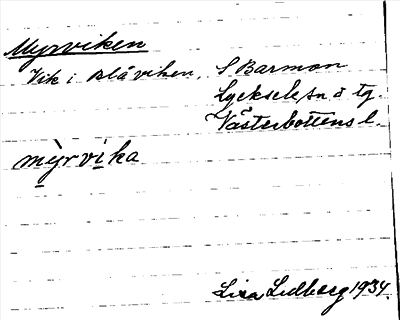 Myrviken
Vik i Blåviken, S Barmon
Lycksele sn o tg.
Västerbottens l.
my̆rvika
Lisa Lidberg 1934.